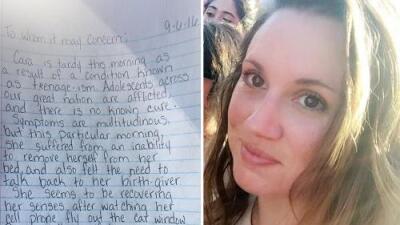 9-6-16
To whom it may concern:
Cara is tardy this morning as
a result of a condition known
as teenage-ism. Adolescents across
our great nation are afflicted,
and there is no known cure.
Symptoms are multitudinous,
but this particular morning,
she suffered from an inability
to remove herself from her
bed, and also felt the need to
talk back to her birth-giver.
She seems to be recovering
her senses after watching her
cell phone fly out the car window